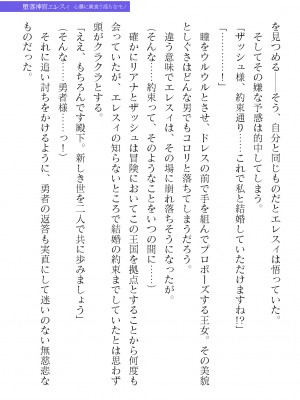 堕落神官エレスィ 心棲に巣食う淫らなモノ
を見つめる――そう、自分と同じものだとエレスィは悟っていた。
そしてその嫌な予感は的中してしまう。
「ザッシュ様、約束通り……これで私と結婚していただけますね!?」
瞳をウルウルとさせ、ドレスの前で手を組んでプロポーズする王女。その美貌
としぐさはどんな男でもコロリと落ちてしまうだろう。
違う意味でエレスィは、その場に崩れ落ちそうになったが。
(そんな……約束って、そのようなことをいつの間に……)
確かにリアナとザッシュは冒険においてこの王国を拠点とすることから何度も
会っていたが、エレスィの知らないところで結婚の約束までしていたとは思わず
頭がクラクラとする。
「ええ、もちろんです殿下。新しき世を二人で共に歩みましょう」
(そんな……勇者様……っ!)
それに追い討ちをかけるように、勇者の返答も実直にして迷いのない無慈悲な
ものだった。